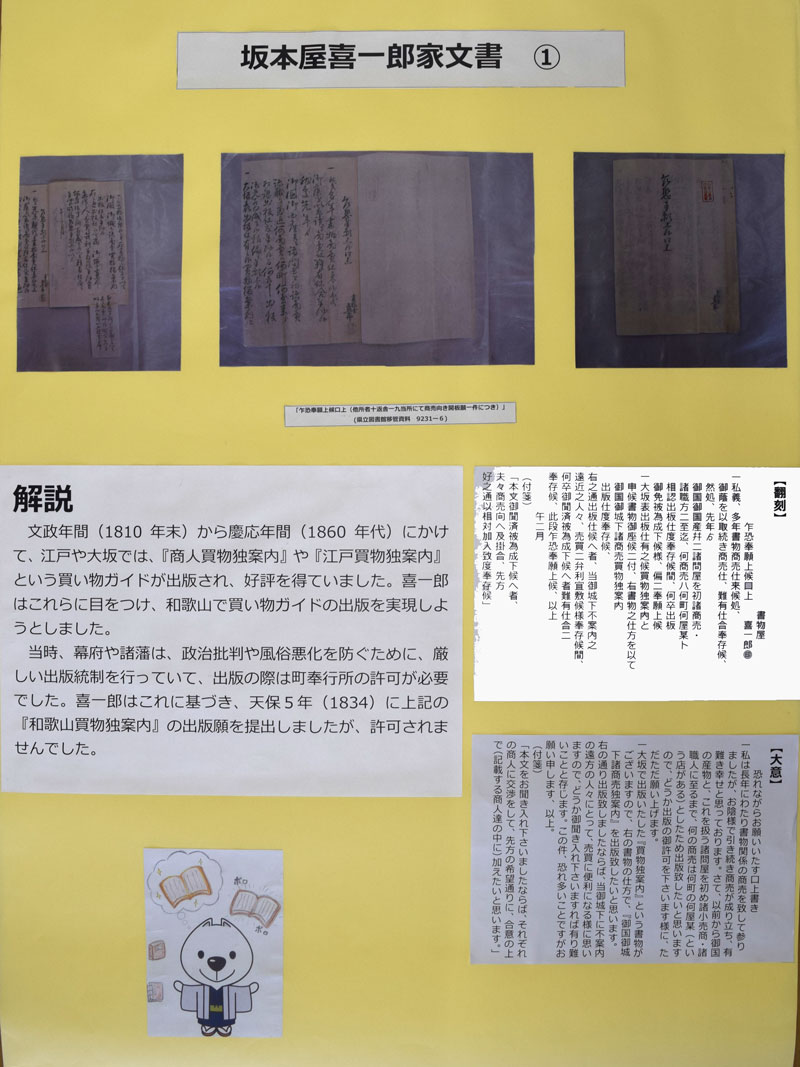 坂本屋喜一郎家文書　①
「乍恐奉願上候口上（他所者十返舎一九当所にて商売向き開板願一件につき）」
(県立図書館移管資料　9231－6)
解説
　文政年間（1810 年末）から慶応年間（1860 年代）にかけ
て、江戸や大坂では、『商人買物独案内』や『江戸買物独案内』
という買い物ガイドが出版され、好評を得ていました。喜一郎
はこれらに目をつけ、和歌山で買い物ガイドの出版を実現しよ
うとしました。
　当時、幕府や諸藩は、政治批判や風俗悪化を防ぐために、厳
しい出版統制を行っていて、出版の際は町奉行所の許可が必要
でした。喜一郎はこれに基づき、天保５年（1834）に上記の
『和歌山買物独案内』の出版願を提出しましたが、許可されま
せんでした。
【翻刻】
書物屋
喜一郎㊞
乍恐奉願上候口上
一私義、多年書物商売仕来候処、
御蔭を以取続き商売仕、難有仕合奉存候、
然処、先年ゟ
御国御国産幷ニ諸問屋を初諸商売・
諸職方ニ至迄、何商売ハ何町何屋某ト
相認出板仕度奉存候間、何卒出板
御免被為成下候様、偏ニ奉願上候
一大坂表出板仕有之候買物独案内と
申候書物御座候ニ付、右書物之仕方を以て
御国御城下諸商売買物独案内
出版仕度奉存候、
右之通出版仕候ヘ者、当御城下不案内之
遠近之人々、売買ニ弁利宜敷候様奉存候間、
何卒御聞済被為成下候ヘ者難有仕合ニ
奉存候、此段乍恐奉願上候、以上
午二月
（付箋）
「本文御聞済被為成下候ヘ者、
夫々商売向ヘ及掛合、先方
好之通以相対加入致度奉存候」
【大意】
恐れながらお願いいたす口上書き
一私は長年にわたり書物関係の商売を致して参り
ましたが、お陰様で引き続き商売が成り立ち、有
難き幸せと思っております。さて、以前から御国
の産物と、これを扱う諸問屋を初め諸小売商・諸
職人に至るまで、何の商売は何町の何屋某（とい
う店がある）としたため出版致したいと思います
ので、どうか出版の御許可を下さいます様に、た
だただ願い上げます。
一大坂で出版いたした『買物独案内』という書物が
ございますので、右の書物の仕方で、『御国御城
下諸商売独案内』を出版致したいと思います。
右の通り出版致しましたならば、当御城下に不案内
の遠方の人々にとって、売買に便利になる様に思い
ますので、どうか御聞き入れ下さいますれば有り難
いことと存じます。この件、恐れ多いことですがお
願い申します、以上。
（付箋）
「本文をお聞き入れ下さいましたならば、それぞれ
の商人に交渉をして、先方の希望通りに、合意の上
で（記載する商人達の中に）加えたいと思います。」
ポロ
ポロ